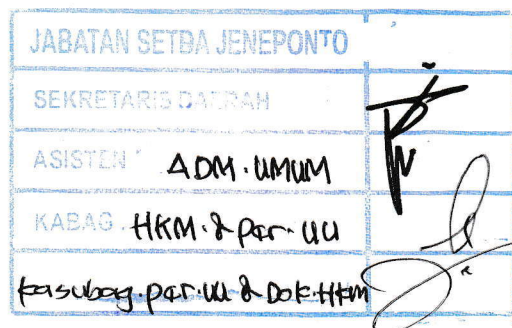 JABATAN SETDA JENEPONTO
SEKRETARIS DAERAH
ASISTEN ADM. UMUM
KABAG. HKM. & Per. UU
Kasubag. per. UU & Dok. HKM